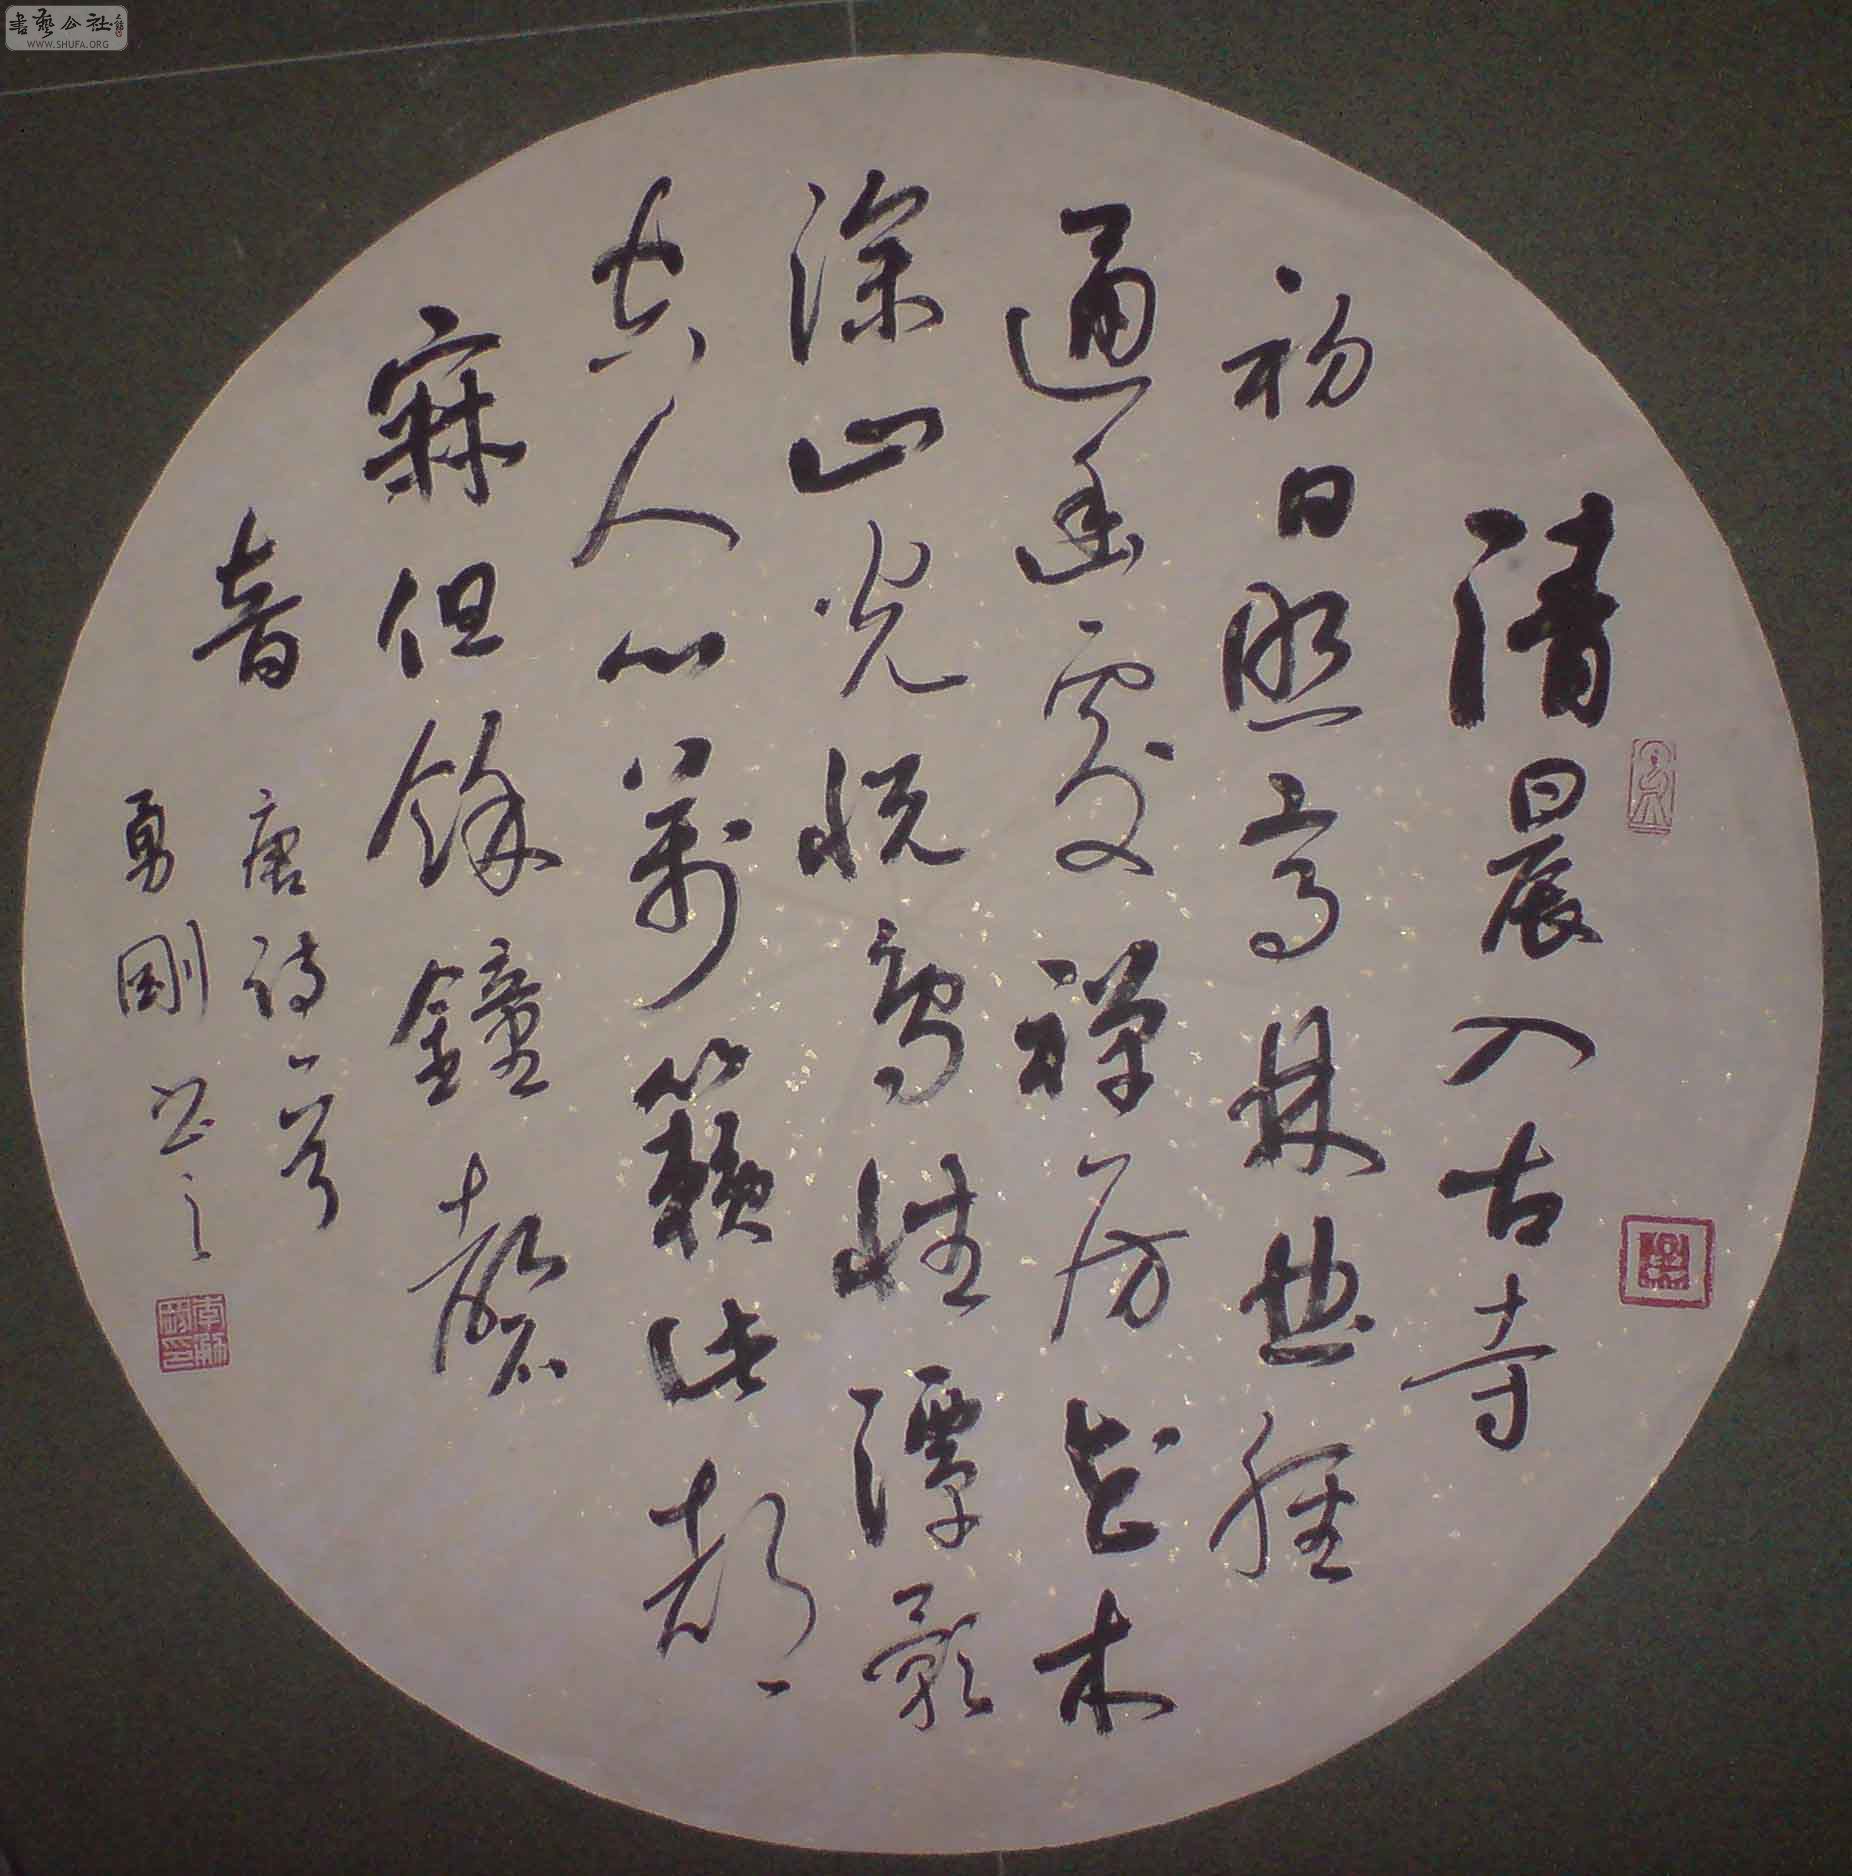 書藝公社
WWW.SHUFA.ORG
清晨入古寺
初日照高林曲徑
通幽處禅房花木
深山光悦鳥性潭影
空人心萬籟此都
寂但餘鐘磬
音
唐詩一首
勇剛书之